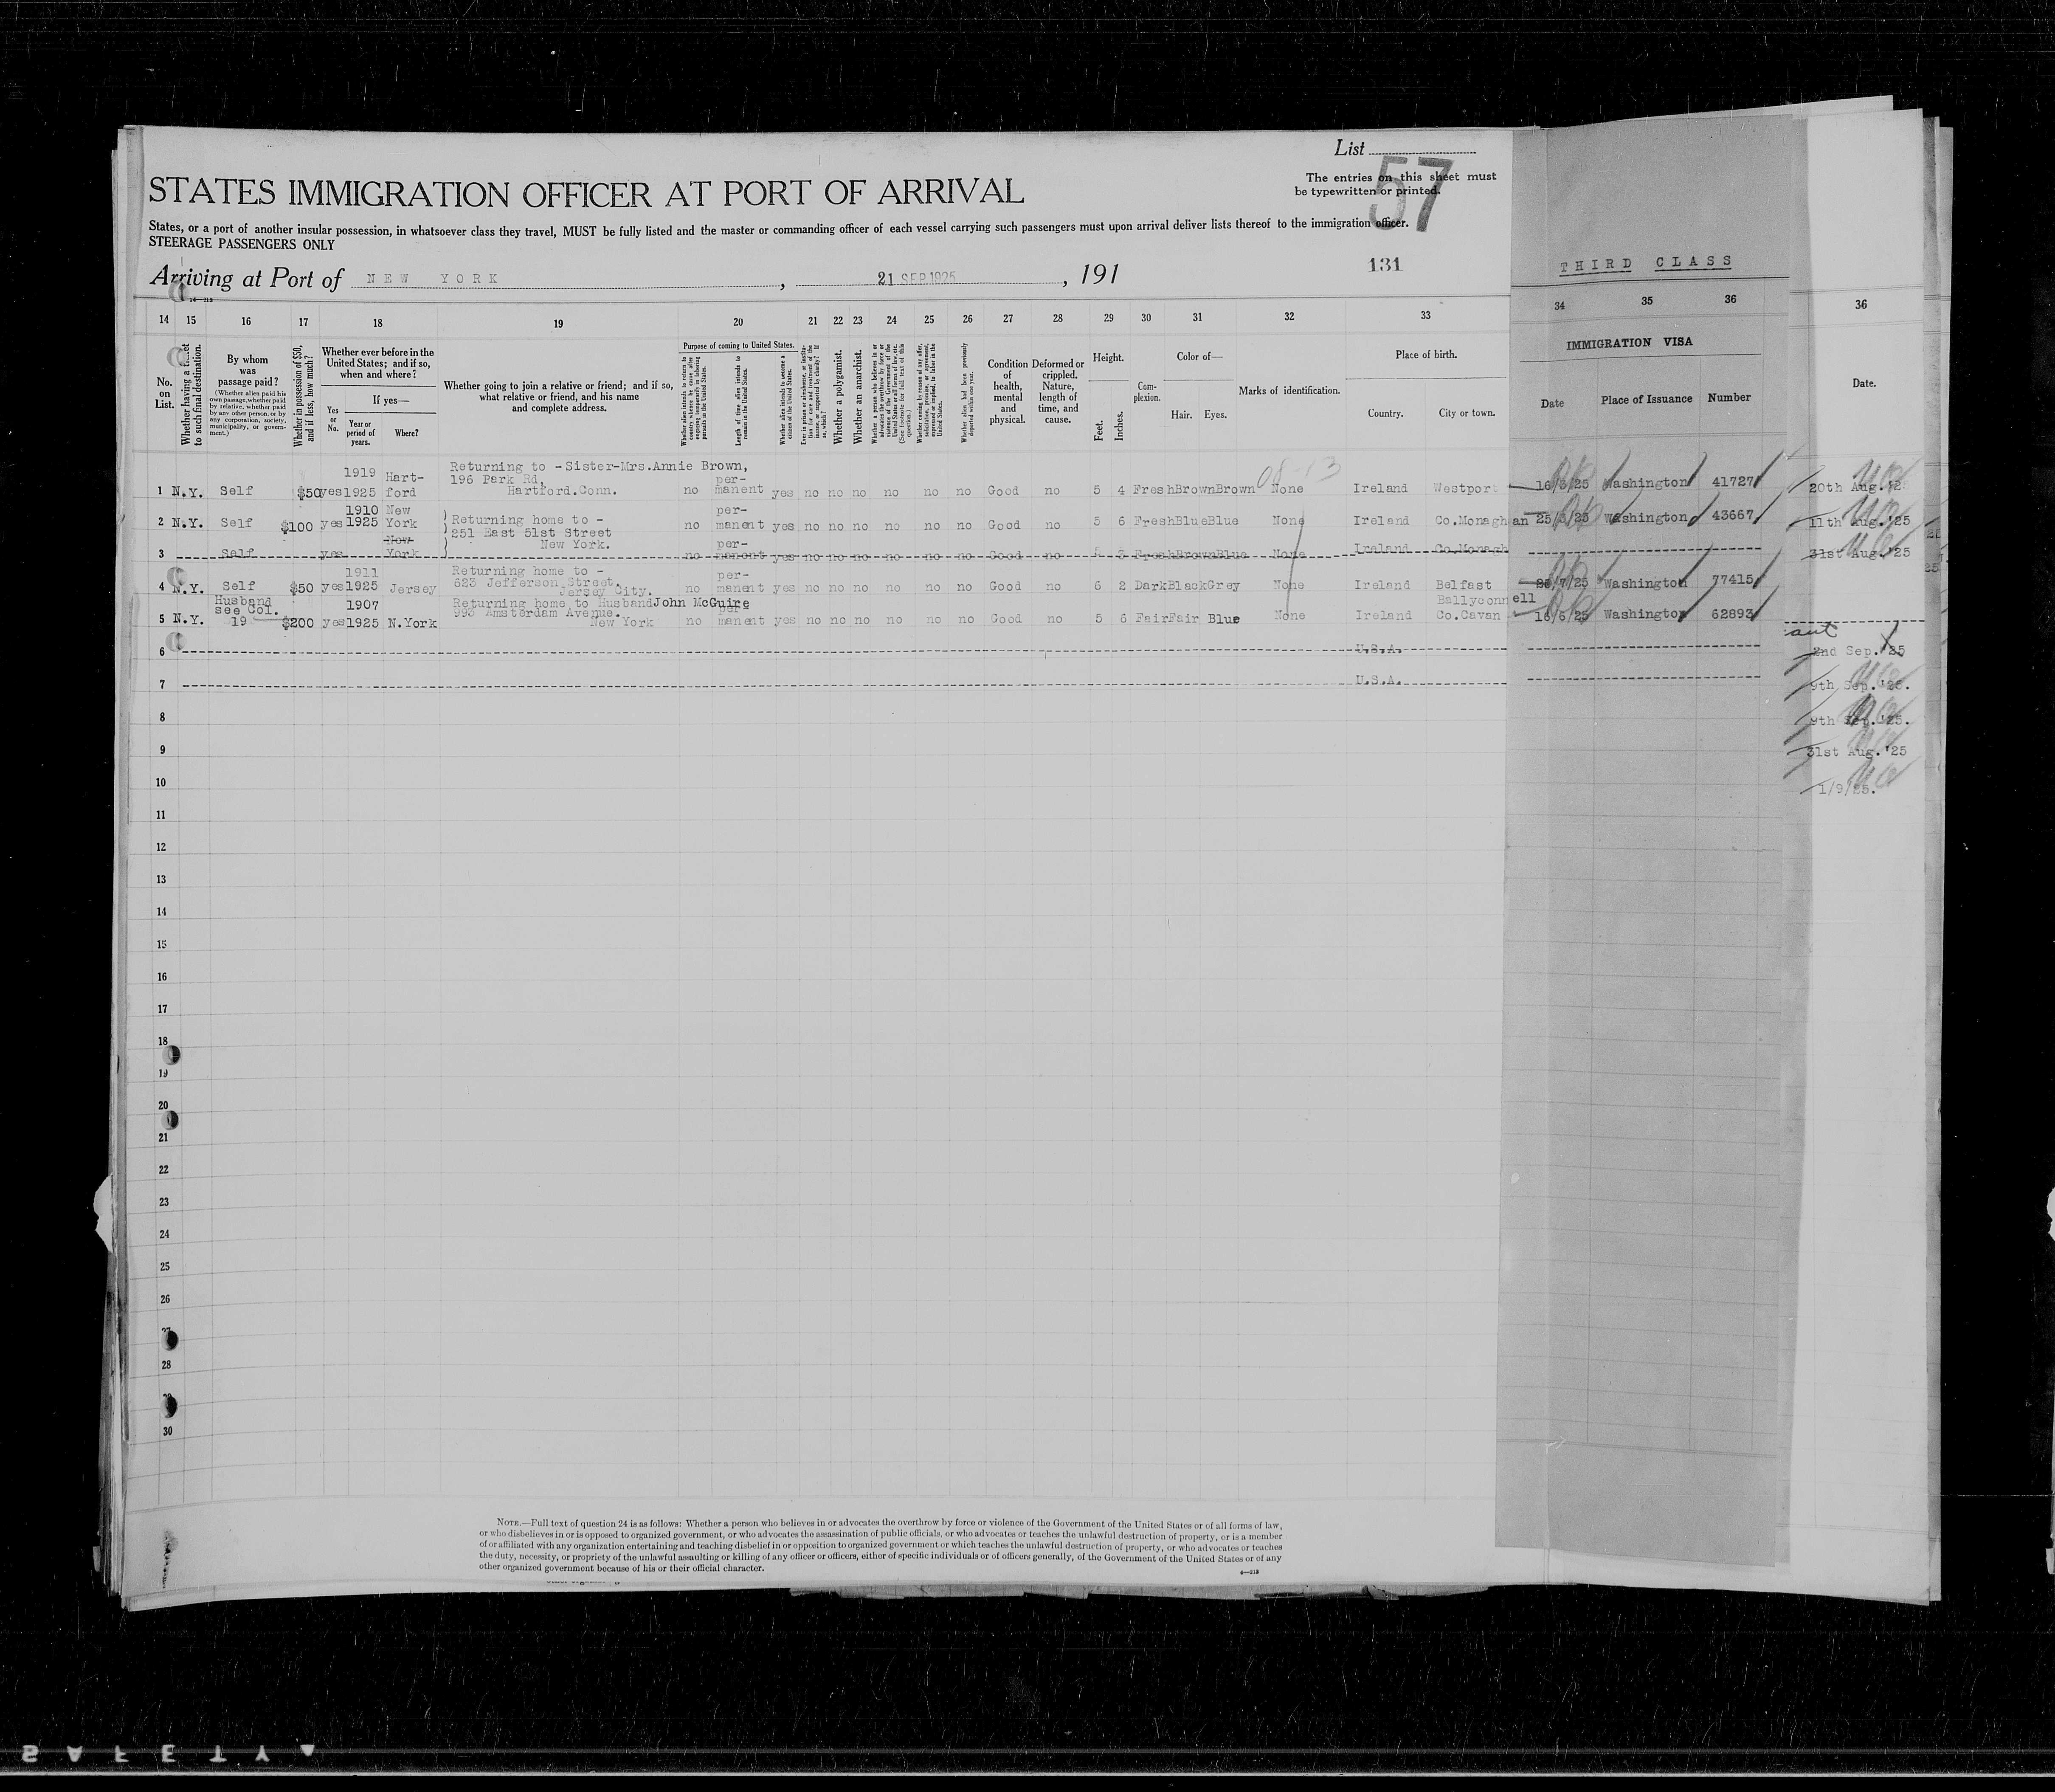 List
57
The entries on this sheet must
be typewritten or printed.
STATES IMMIGRATION OFFICER AT PORT OF ARRIVAL
States, or a port of another insular possession, in whatsoever class they travel, MUST be fully listed and the master or commanding officer of each vessel carrying such passengers must upon arrival deliver lists thereof to the immigration officer.
STEERAGE PASSENGERS ONLY
Arriving at Port of NEW YORK , 21 SEP 1925 , 191
131
THIRD CLASS
14 15 16 17 18 19 20 21 22 23 24 25 26 27 28 29 30 31 32 33 34 35 36 36
No. on List.
Whether having a ticket to such final destination.
By whom was passage paid?
(Whether alien paid his own passage, whether paid by relative, whether paid by any other person, or by any corporation, society, municipality, or government.)
Whether in possession of $50, and if less, how much?
Whether ever before in the United States; and if so, when and where?
If yes—
Yes or No.
Year or period of years.
Where?
Whether going to join a relative or friend; and if so, what relative or friend, and his name and complete address.
Purpose of coming to United States.
Whether alien intends to return to country whence he came after engaging temporarily in laboring pursuits in the United States.
Length of time alien intends to remain in the United States.
Whether alien intends to become a citizen of the United States.
Ever in prison or almshouse, or institution for care and treatment of the insane, or supported by charity? If so, which?
Whether a polygamist.
Whether an anarchist.
Whether coming by reason of any offer, solicitation, promise, or agreement, expressed or implied, to labor in the United States.
Whether alien had been previously deported within one year.
Condition of health, mental and physical.
Deformed or crippled. Nature, length of time, and cause.
Height.
Feet. Inches.
Complexion.
Color of—
Hair. Eyes.
Marks of identification.
Place of birth.
Country. City or town.
IMMIGRATION VISA
Date Place of Issuance Number
Date.
1 N.Y. Self $50 yes 1919 1925 Hartford Returning to - Sister-Mrs.Annie Brown, 196 Park Rd, Hartford.Conn. no permanent yes no no no no no no Good no 5 4 Fresh Brown Brown None Ireland Westport 16/5/25 Washington 41727
2 N.Y. Self $100 yes 1910 1925 New York Returning home to - 251 East 51st Street New York. no permanent yes no no no no no no Good no 5 6 Fresh Blue Blue None Ireland Co.Monaghan 25/5/25 Washington 43667
3 Self yes New York no permanent yes no no no no no no Good no 5 Fresh Brown Blue None Ireland Co.Monagh
4 N.Y. Self $50 yes 1911 1925 Jersey Returning home to - 623 Jefferson Street. Jersey City. no permanent yes no no no no no no Good no 6 2 Dark Black Grey None Ireland Belfast 7/25 Washington 77415
5 N.Y. Husband see Col. 19 $200 yes 1907 1925 N.York Returning home to Husband John McGuire 993 Amsterdam Avenue. New York no permanent yes no no no no no no Good no 5 6 Fair Fair Blue None Ireland Ballyconnell Co.Cavan 16/6/25 Washington 62893
6 U.S.A.
7 U.S.A.
8
9
10
11
12
13
14
15
16
17
18
19
20
21
22
23
24
25
26
28
30
20th Aug.
11th Aug.'25
31st Aug.'25
2nd Sep.'25
9th Sep.
9th Sep.'25.
31st Aug.'25
1/9/25.
NOTE.—Full text of question 24 is as follows: Whether a person who believes in or advocates the overthrow by force or violence of the Government of the United States or of all forms of law,
or who disbelieves in or is opposed to organized government, or who advocates the assassination of public officials, or who advocates or teaches the unlawful destruction of property, or is a member
of or affiliated with any organization entertaining and teaching disbelief in or opposition to organized government or which teaches the unlawful destruction of property, or who advocates or teaches
the duty, necessity, or propriety of the unlawful assaulting or killing of any officer or officers, either of specific individuals or of officers generally, of the Government of the United States or of any
other organized government because of his or their official character.
SAFETY